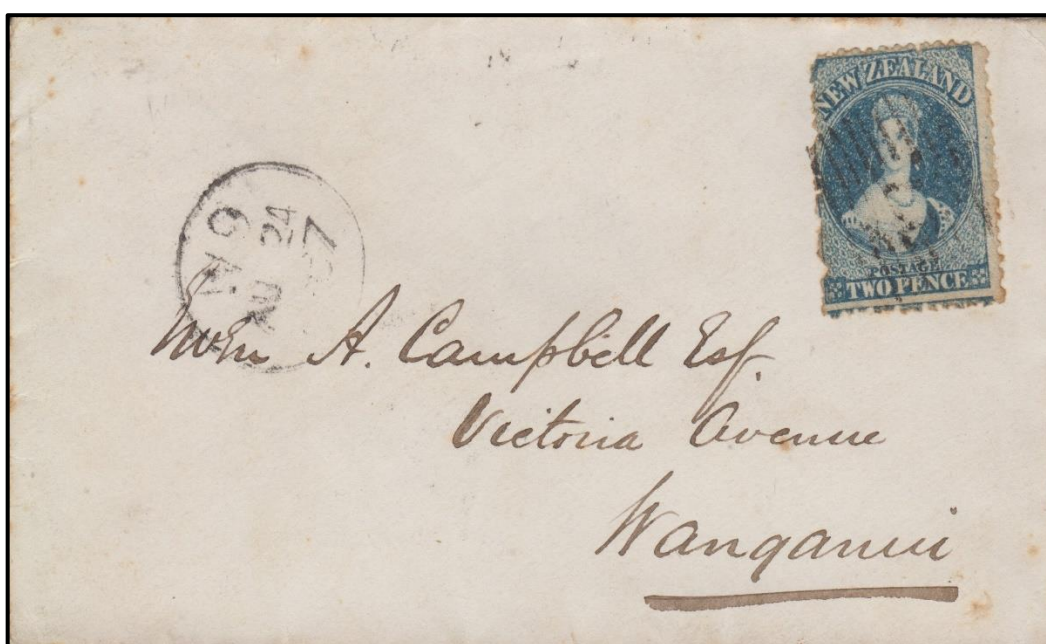 NEW ZEALAND
POSTAGE
TWO PENCE
24
A. Campbell Esq.
Victoria Avenue
Wanganui